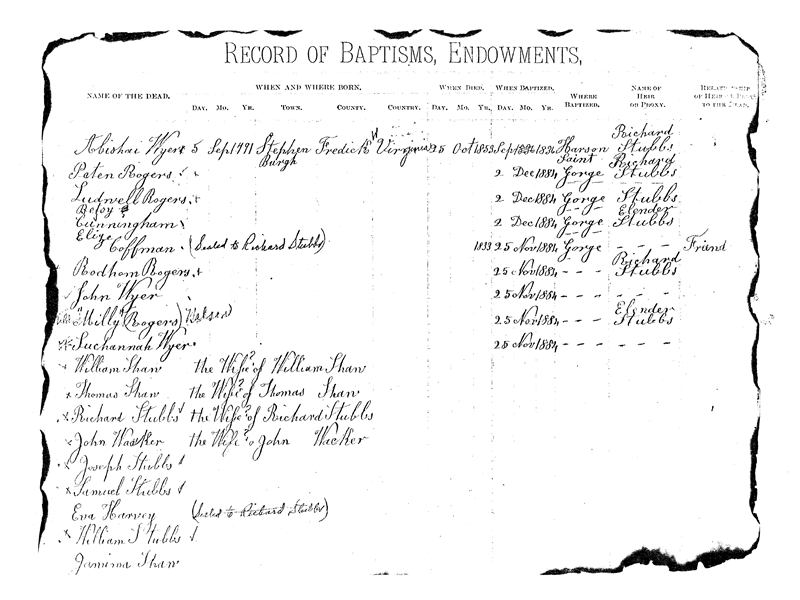 RECORD OF BAPTISMS, ENDOWMENTS,
NAME OF THE DEAD. WHEN AND WHERE BORN. WHEN DIED. WHEN BAPTIZED. WHERE BAPTIZED. NAME OF HEIR OR PROXY. RELATIONSHIP OF HEIR OR PROXY TO THE DEAD.
DAY. MO. YR. TOWN. COUNTY. COUNTRY. DAY. MO. YR. DAY. MO. YR.
Abishai Wyer 5 Sep 1771 Stephen Burgh Fredick W Virginia 25 Oct 1853 Sep 1836 Richard Stubbs
Paten Rogers 2 Dec 1884 Saint Gorge Richard Stubbs
Ludwell Rogers 2 Dec 1884 Gorge Stubbs
Betsy Cunningham 2 Dec 1884 Gorge Elender Stubbs
Eliza Coffman (Sealed to Richard Stubbs) 1833 25 Nov 1884 Gorge - - - Friend
Rodham Rogers 25 Nov 1884 - - - Richard Stubbs
John Wyer 25 Nov 1884 - - - - - -
"Milly" Rogers) 25 Nov 1884 - - - Elender Stubbs
Suchannah Wyer 25 Nov 1884 - - - - - -
x William Shaw the Wife? of William Shaw
x Thomas Shaw the Wife? of Thomas Shaw
x Richard Stubbs the Wife? of Richard Stubbs
x John Wacker the Wife? o John Wacker
x Joseph Stubbs
x Samuel Stubbs
Eva Harvey (Sealed to Richard Stubbs)
x William Stubbs
Jamima Shaw